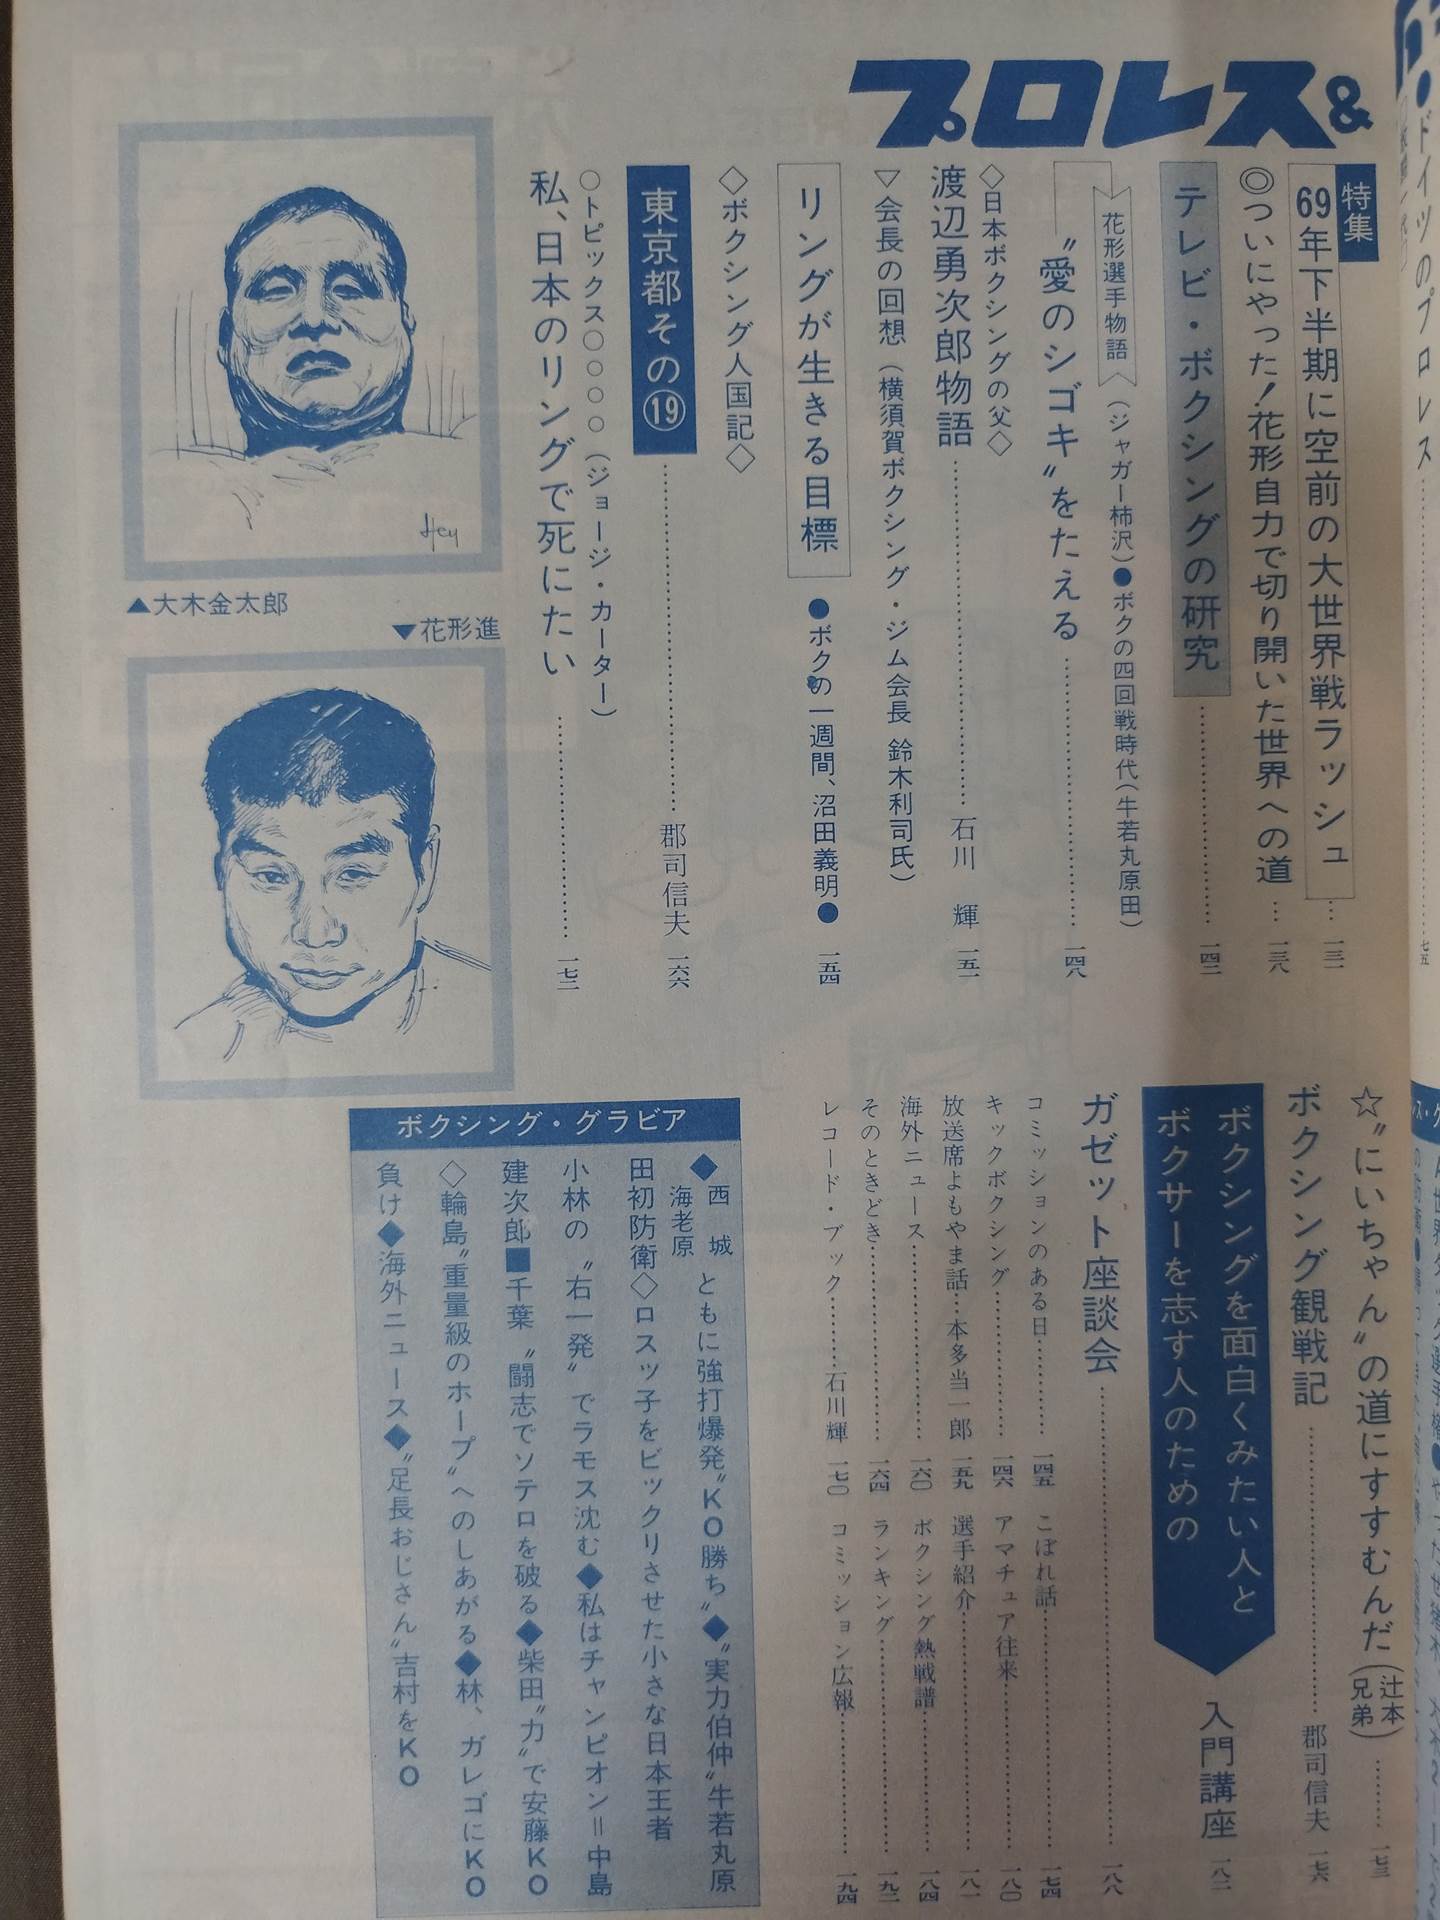 プロレス&
特集
69年下半期に空前の大世界戦ラッシュ…一三一
◎ついにやった!花形自力で切り開いた世界への道…一三八
テレビ・ボクシングの研究……一四二
花形選手物語(ジャガー柿沢)●ボクの四回戦時代(牛若丸原田)
〝愛のシゴキ〟をたえる……一四八
◇日本ボクシングの父◇
渡辺勇次郎物語……石川 輝 一五一
▽会長の回想(横須賀ボクシング・ジム会長 鈴木利司氏)
リングが生きる目標 ●ボクの一週間、沼田義明● 一五四
◇ボクシング人国記◇
東京都その⑲……郡司信夫 一六六
○トピックス○○○○(ジョージ・カーター)
私、日本のリングで死にたい……一七二
▲大木金太郎
▼花形進
Hey
☆〝にいちゃん〟の道にすすむんだ(辻本兄弟)……一七三
ボクシング観戦記……郡司信夫 一七六
ボクシングを面白くみたい人と
ボクサーを志す人のための
入門講座 一八二
ガゼット座談会……一八八
コミッションのある日……一四五
キックボクシング……一四六
放送席よもやま話…本多当一郎 一五九
海外ニュース……一六〇
そのときどき……一六四
レコード・ブック……石川輝 一七〇
こぼれ話……一七四
アマチュア往来……一八〇
選手紹介……一八一
ボクシング熱戦譜……一八四
ランキング……一九二
コミッション広報……一九四
ボクシング・グラビア
◆西城 海老原 ともに強打爆発〝KO勝ち〟◆〝実力伯仲〟牛若丸原
田初防衛◇ロスッ子をビックリさせた小さな日本王者
小林の〝右一発〟でラモス沈む◆私はチャンピオン=中島
建次郎■千葉〝闘志でソテロを破る◆柴田〝力〟で安藤KO
◇輪島〝重量級のホープ〟へのしあがる◆林、ガレゴにKO
負け◆海外ニュース◆〝足長おじさん〟吉村をKO
ドイツのプロレス……七五